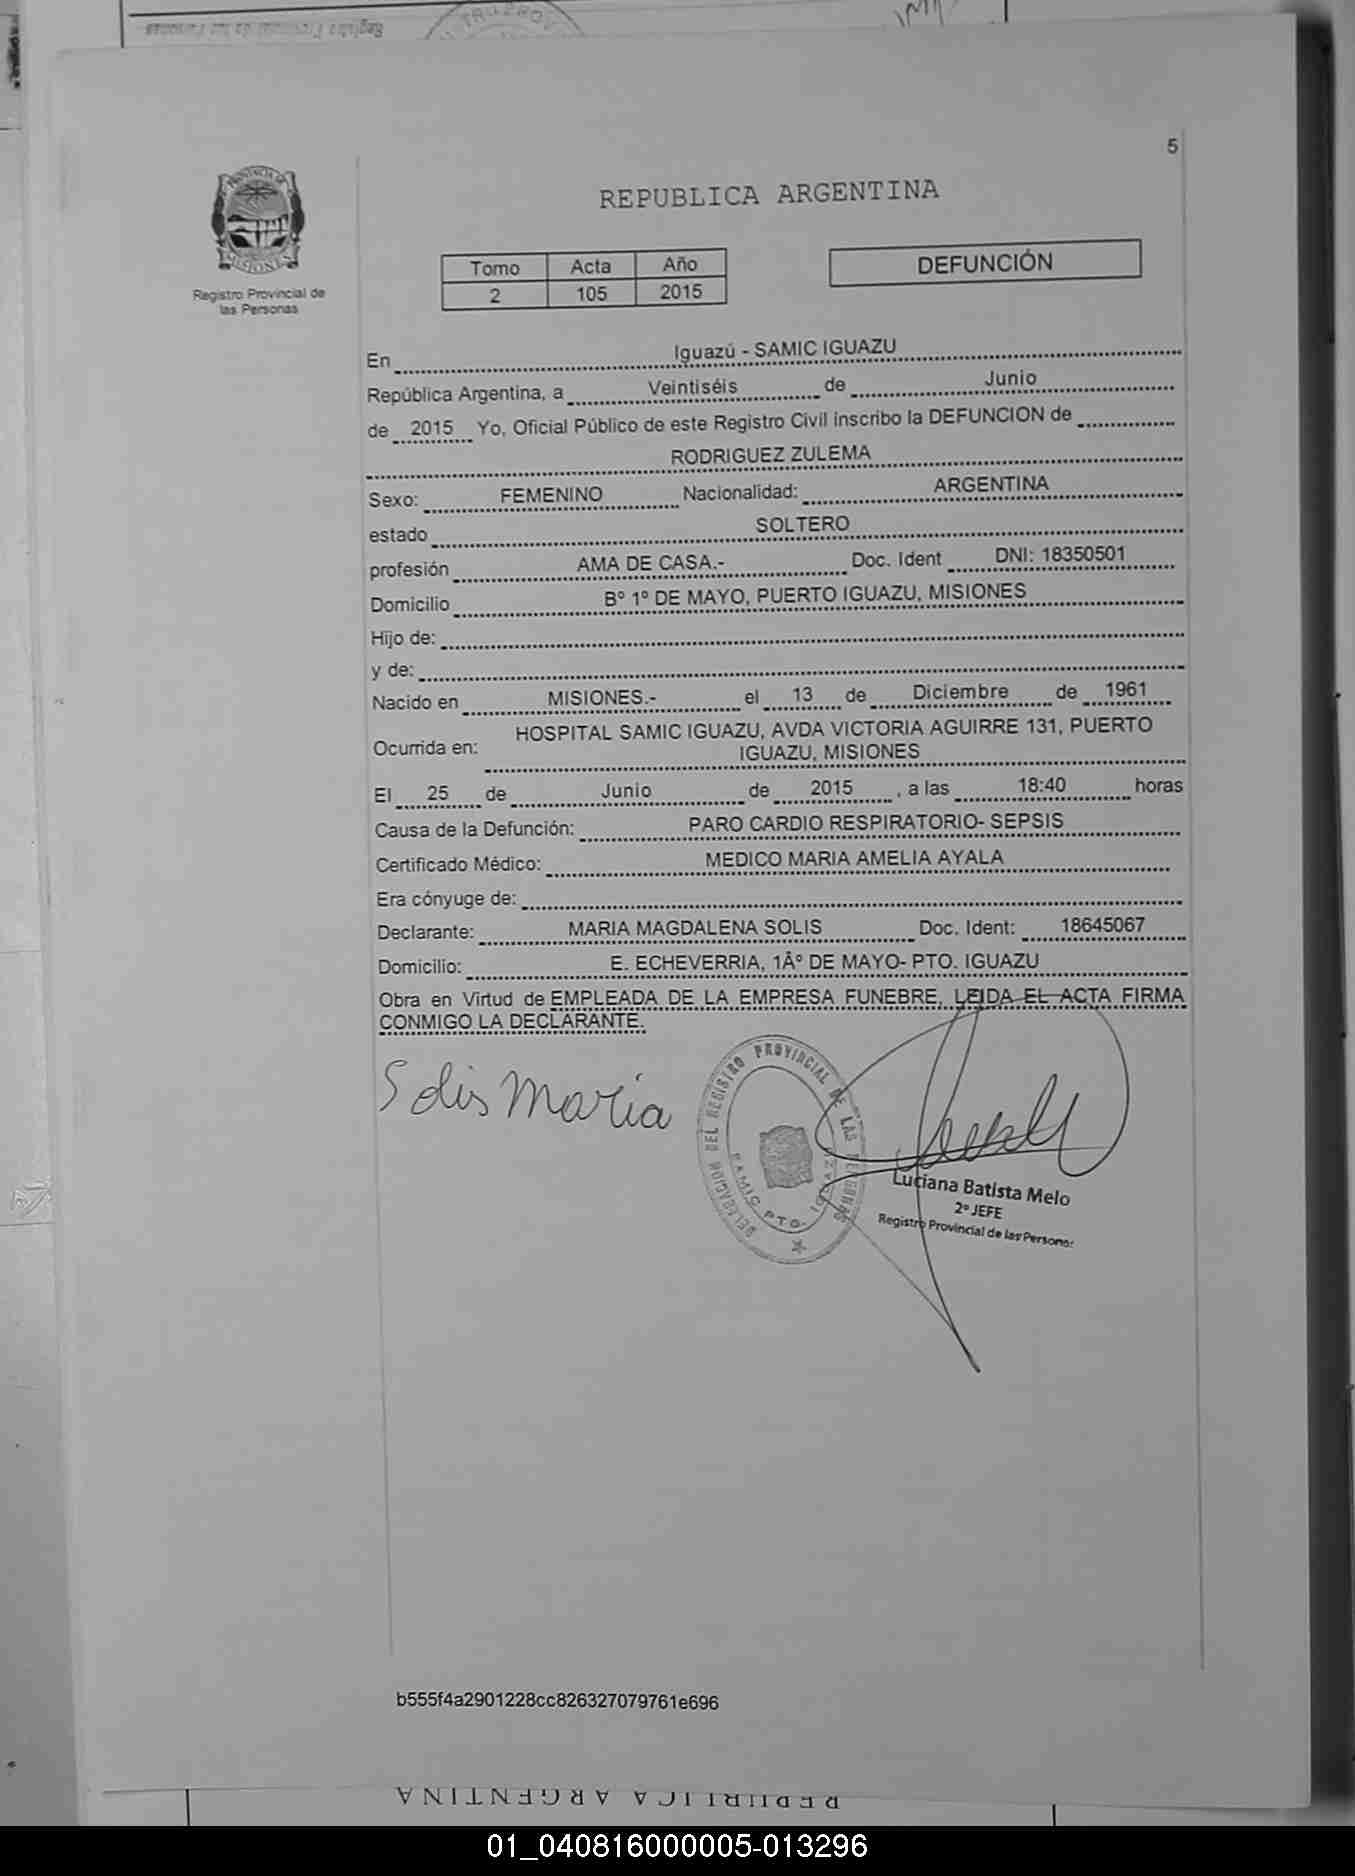 Registro Provincial de las Personas
5
REPUBLICA ARGENTINA
Registro Provincial de
las Personas
Tomo Acta Año
2 105 2015
DEFUNCIÓN
En Iguazú - SAMIC IGUAZU
República Argentina, a Veintiséis de Junio
de 2015 Yo, Oficial Público de este Registro Civil inscribo la DEFUNCION de
RODRIGUEZ ZULEMA
Sexo: FEMENINO Nacionalidad: ARGENTINA
estado SOLTERO
profesión AMA DE CASA.- Doc. Ident DNI: 18350501
Domicilio Bº 1º DE MAYO, PUERTO IGUAZU, MISIONES
Hijo de:
y de:
Nacido en MISIONES.- el 13 de Diciembre de 1961
Ocurrida en: HOSPITAL SAMIC IGUAZU, AVDA VICTORIA AGUIRRE 131, PUERTO
IGUAZU, MISIONES
El 25 de Junio de 2015 , a las 18:40 horas
Causa de la Defunción: PARO CARDIO RESPIRATORIO- SEPSIS
Certificado Médico: MEDICO MARIA AMELIA AYALA
Era cónyuge de:
Declarante: MARIA MAGDALENA SOLIS Doc. Ident: 18645067
Domicilio: E. ECHEVERRIA, 1Âº DE MAYO- PTO. IGUAZU
Obra en Virtud de EMPLEADA DE LA EMPRESA FUNEBRE, LEIDA EL ACTA FIRMA
CONMIGO LA DECLARANTE.
Solis Maria
DELEGACION DEL REGISTRO PROVINCIAL DE LAS PERSONAS
SAMIC PTO. IGUAZU
Luciana Batista Melo
2º JEFE
Registro Provincial de las Personas
b555f4a2901228cc826327079761e696
REPUBLICA ARGENTINA
01_040816000005-013296